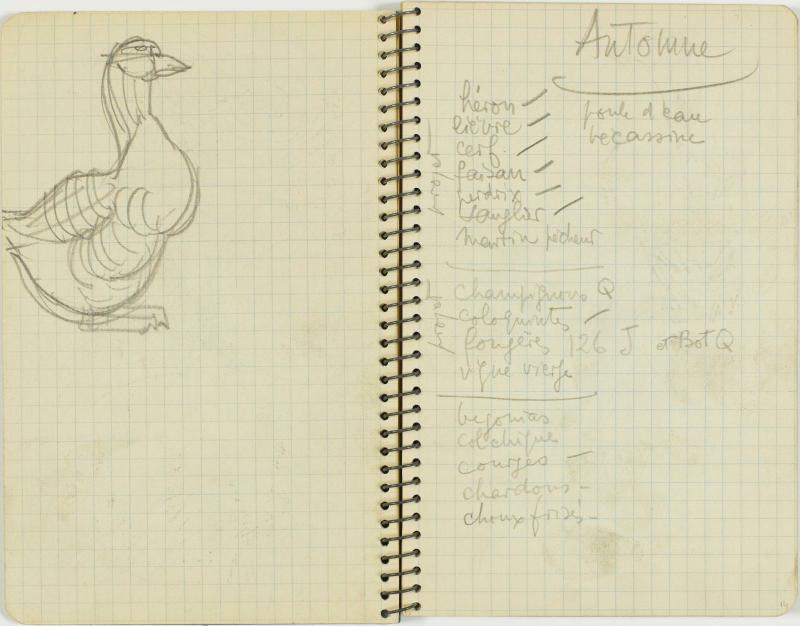 Automne
héron
lièvre
cerf
faisan
perdrix
sanglier
martin pêcheur
poule d'eau
bécassine
champignons Q
coloquintes
fougères 126 J et Bot Q
vigne vierge
begonias
colchique
courges
chardons
choux frisés